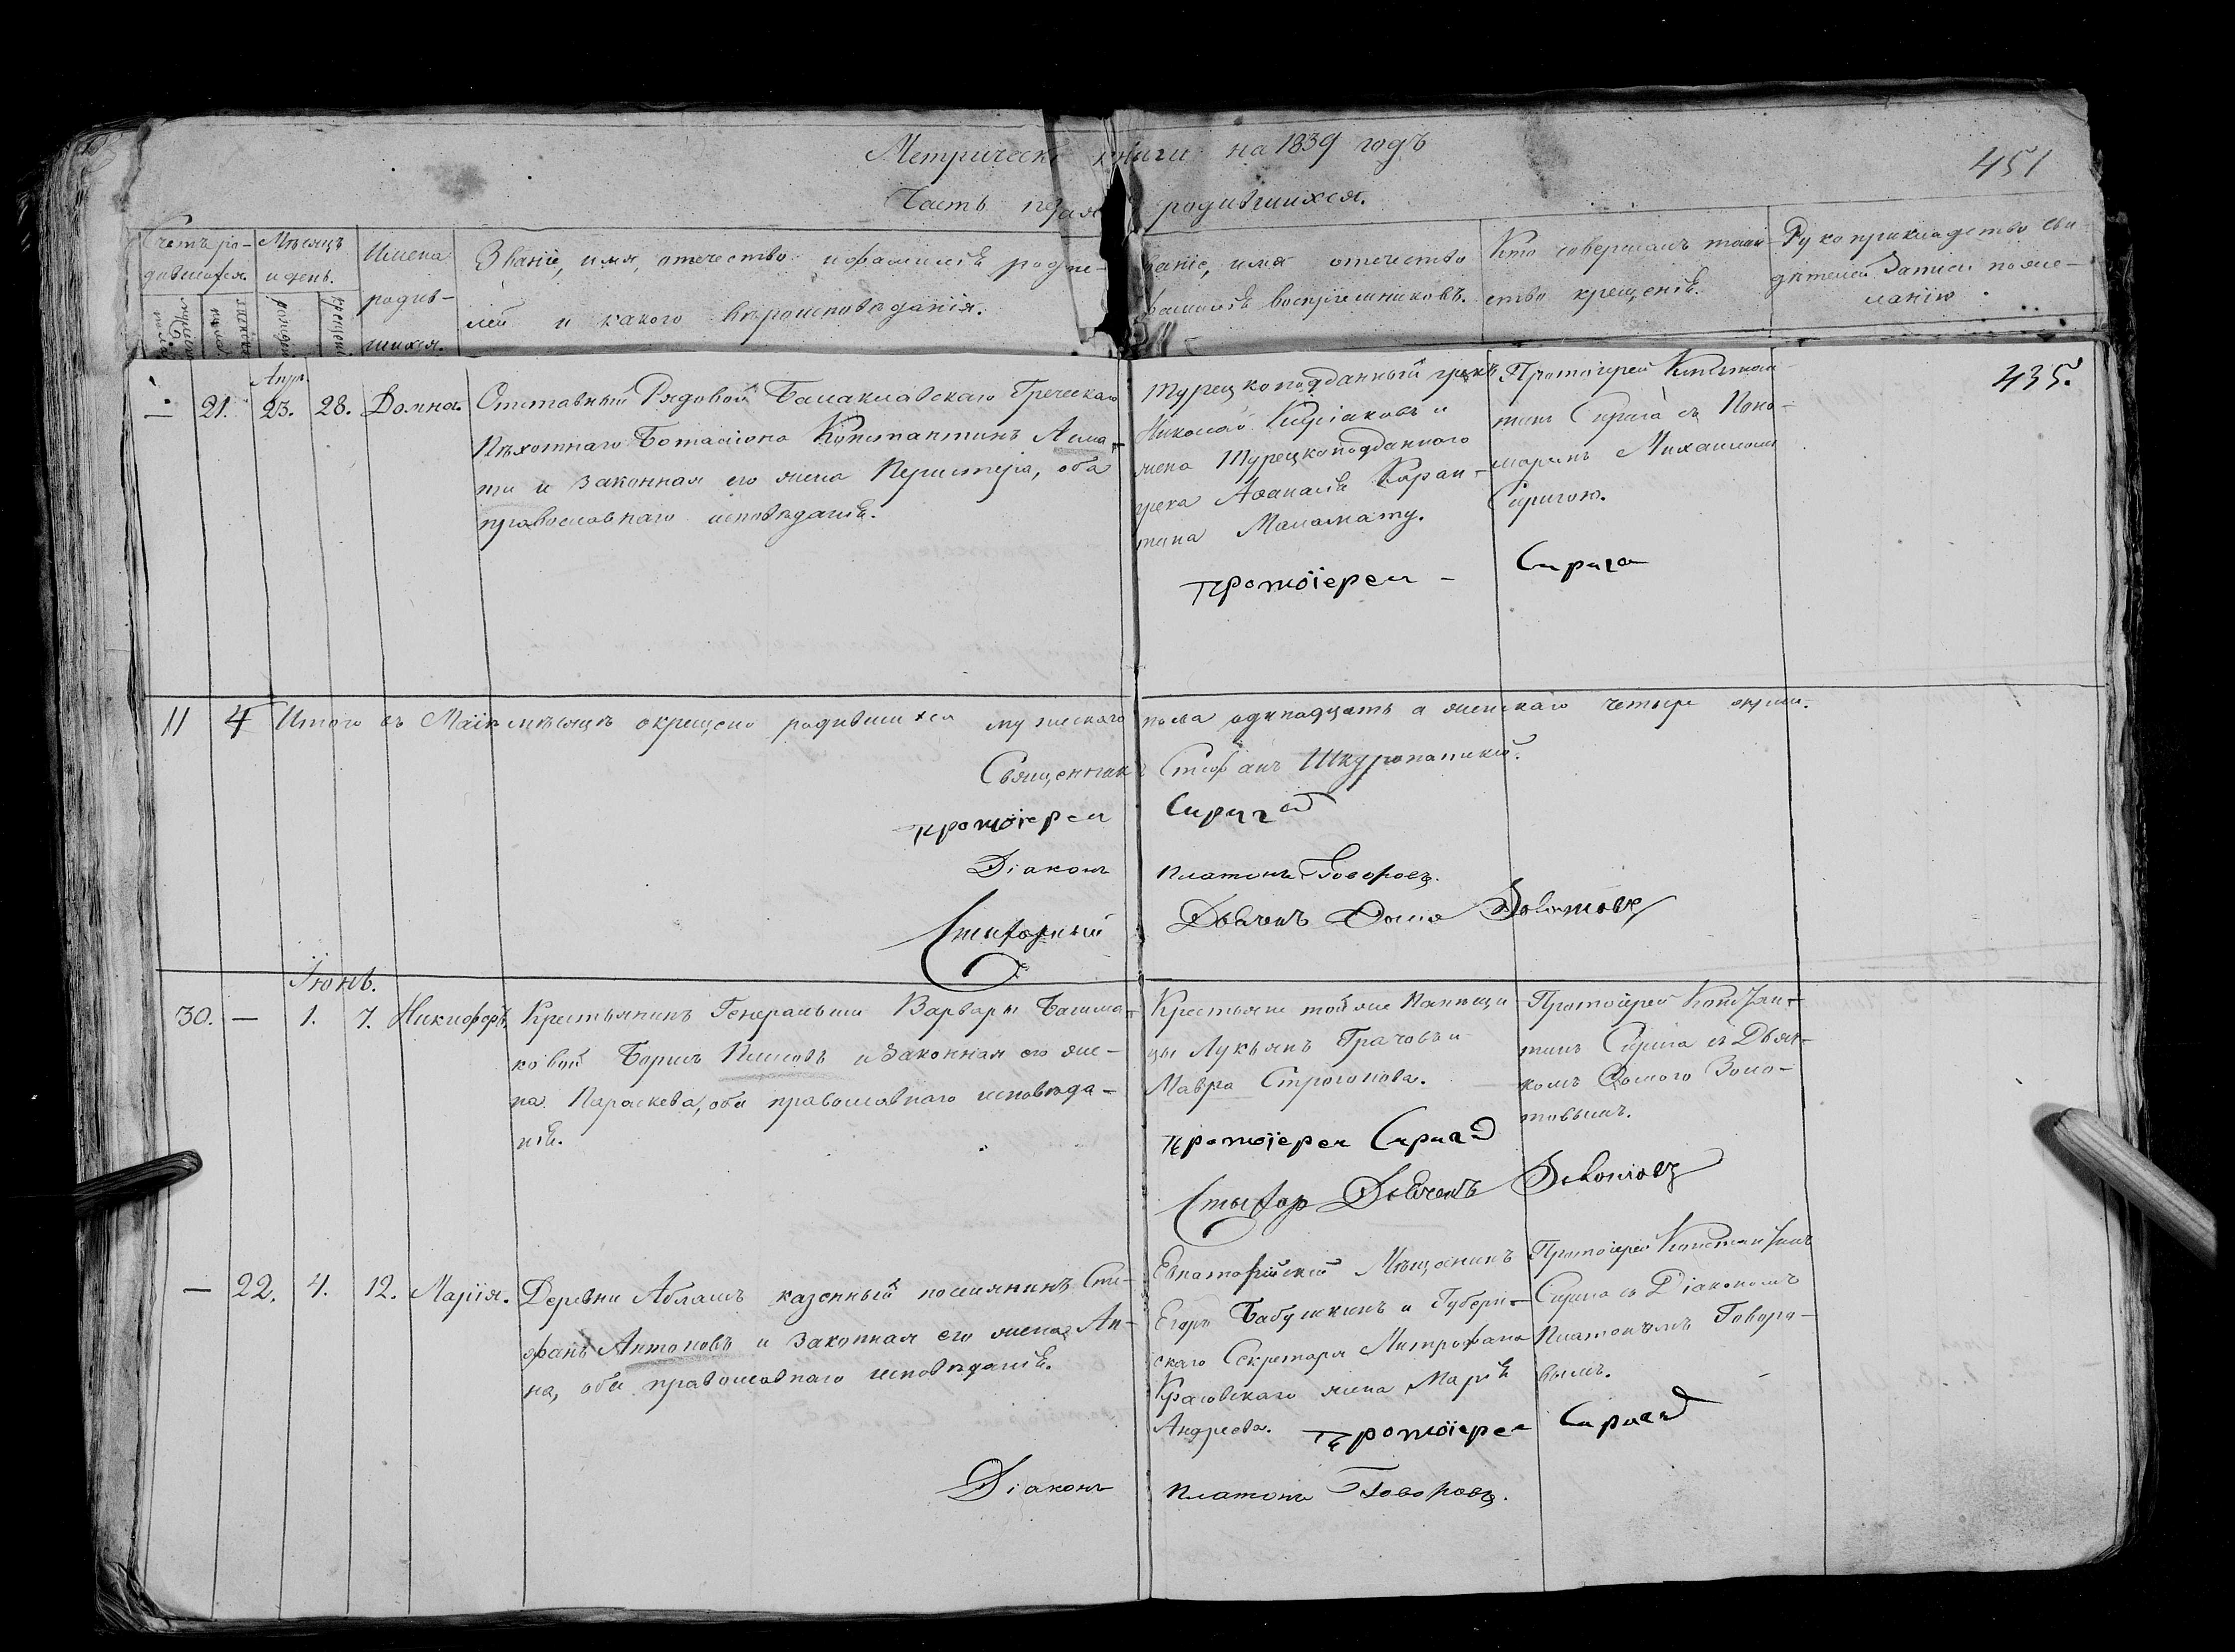 Метрическ книги на 1839 годъ
451
Часть пе рая родившихся.
Счетъ ро-
дившихся.
Мѣсяцъ
и день.
Имена
родив-
шихся.
Званіе, имя, отечество и фамилія родите-
лей и какого вѣроисповѣданія.
ваніе, имя отечество
фамилія воспріемниковъ.
Кто совершалъ таин-
ство крещенія.
Рукоприкладство сви-
дѣтелей записи по же-
ланію.
435.
Апрл.
— 21. 23. 28. Домна.
Отставный Рядовой Балаклавскаго Греческаго
Пѣхотнаго Баталіона Константинъ
и законная его жена Перистера, оба
православнаго исповѣданія.
Турецкоподданный грекъ
Николай Киріаковъ и
жена Турецкоподданного
грека Аѳанасія
Маламату.
Протоіерей Констан-
тинъ Сирига съ Поно-
маремъ Михаиломъ
Сиригою.
протоіереи - Сирига
11 4 Итого въ Маіѣ мѣсяцѣ окрещено родившихся мужескаго пола одинадцать а женскаго четыре души.
Священник Стефанъ Шкуропатскій.
протоіереи Сирига
Діаконъ Платонъ Говоровъ.
Дьячекъ Фома Золотовъ
Іюнь.
30. — 1. 7. Никифоръ.
Крестьянинъ Генеральши Варвары Башма-
ковой Борисъ и законная его же-
на Параскева, оба православнаго исповѣда-
нія.
Крестьяне той же Помѣщи-
цы Лукьянъ Грачовъ и
Мавра Строгонова.
Протоіерей Констан-
тинъ Сирига съ Дьяч-
комъ Фомою Золо-
товымъ.
протоіереи Сирига
Дьячекъ Золотовъ
— 22. 4. 12. Марія.
Деревни Аблашъ казенный поселянинъ Сте-
фанъ Антоновъ и законная его жена Ан-
на, оба православнаго исповѣданія.
Евпаторійскій Мѣщанинъ
Егоръ Бабушкинъ и Губерн-
скаго Секретаря Митрофана
Красовскаго жена Марія
Андреева.
Протоіерей Константинъ
Сирига съ Діакономъ
Платономъ Говоро-
вымъ.
протоіереи Сирига
Діаконъ Платонъ Говоровъ.